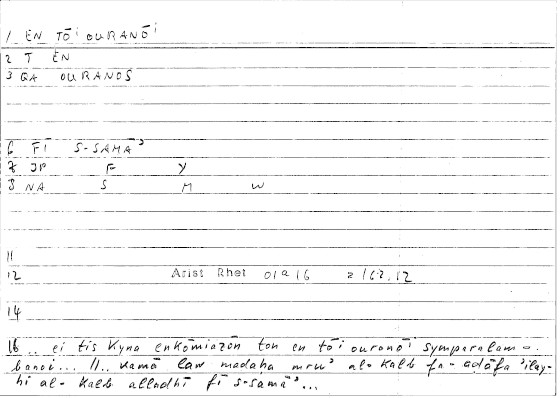 1 EN TŌⁱ OURANŌⁱ
2 T EN
3 QA OURANOS
6 FĪ S-SAMĀʾ
7 JP F Y
8 NA S M W
11
12 Arist Rhet 01a16
14
16 .. ei tis kyna enkōmiazōn ton en tōi ouranōi symparalam-
banoi... //.. kamā law madaḥa mruʾ al-kalb fa-aḍāfa ʾilay-
hi al-kalb alladhī fī s-samāʾ...